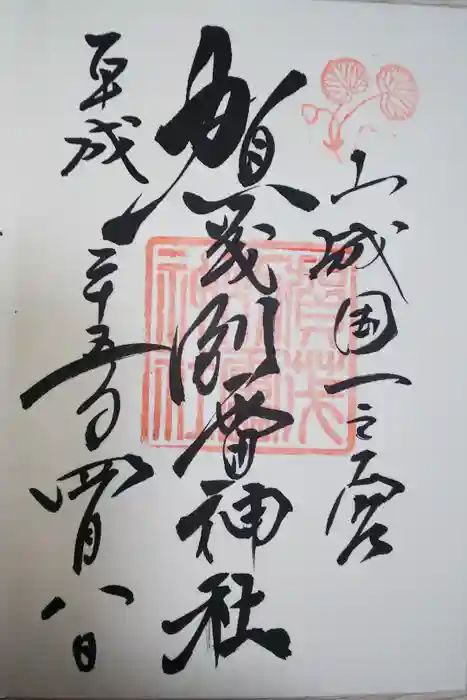 山城国一之宮
賀茂別雷神社
平成二十五年四月八日